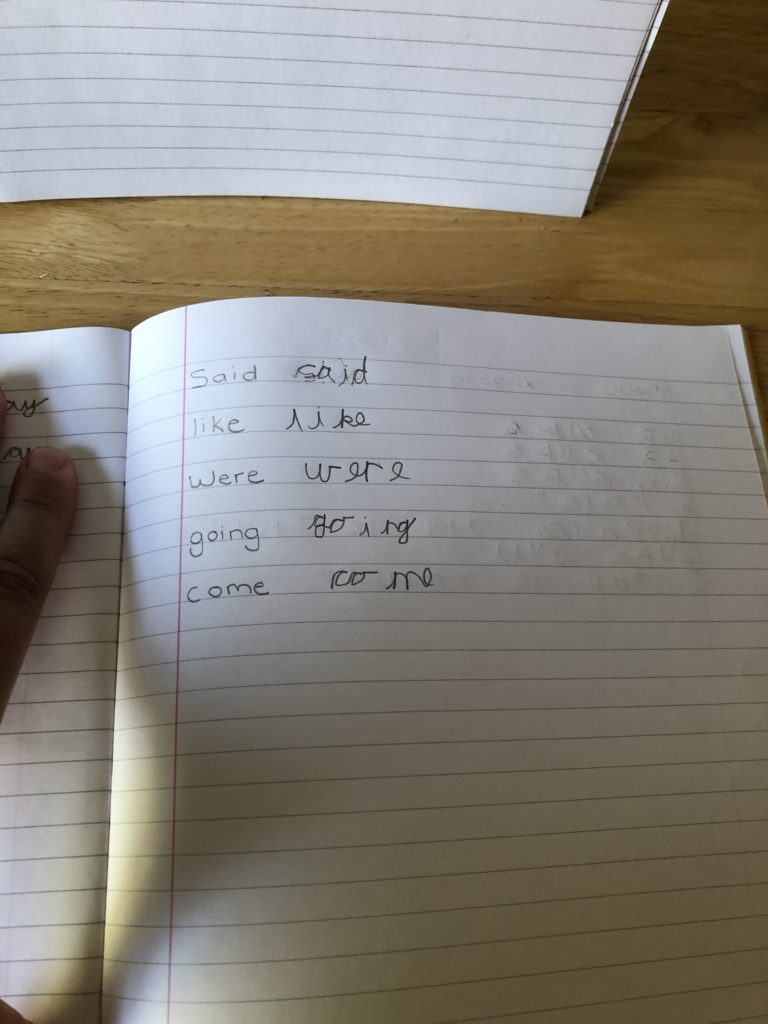 Said said
like like
were were
going going
come come